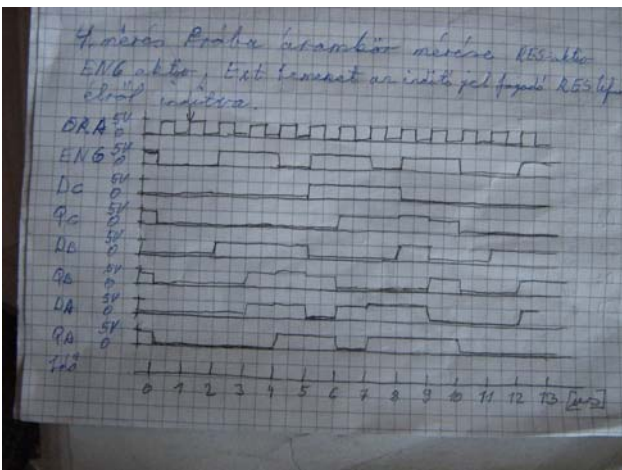 4. mérés Próba áramkör mérése RES aktív
ENG aktív, Ext az indító jel fogadó RES
élről indítva.
ÓRA 5V 0
ENG 5V 0
DC 5V 0
QC 5V 0
DB 5V 0
QB 5V 0
DA 5V 0
QA 5V 0
Idő
0 1 2 3 4 5 6 7 8 9 10 11 12 13 [µs]